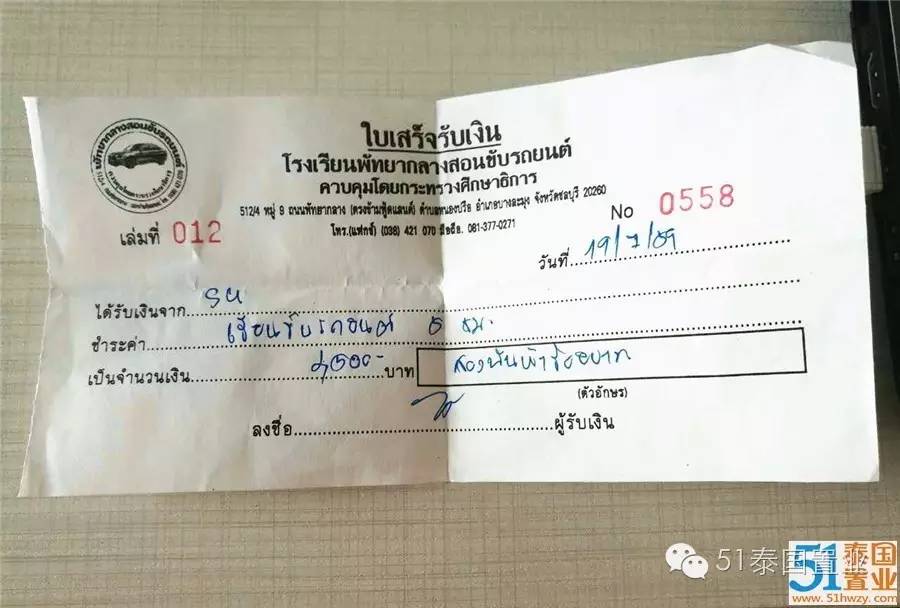 พัทยากลางสอนขับรถยนต์
ใบเสร็จรับเงิน
โรงเรียนพัทยากลางสอนขับรถยนต์
ควบคุมโดยกระทรวงศึกษาธิการ
512/4 หมู่ 9 ถนนพัทยากลาง (ตรงข้ามฟู้ดแลนด์) ตำบลหนองปรือ อำเภอบางละมุง จังหวัดชลบุรี 20260
โทร.(แฟกซ์) (038) 421 070 มือถือ. 081-377-0271
เล่มที่ 012
No 0558
วันที่ 19/7/59
ได้รับเงินจาก
ชำระค่า เรียนขับรถยนต์ 5 ชม.
เป็นจำนวนเงิน 2500.- บาท สองพันห้าร้อยบาท
(ตัวอักษร)
ลงชื่อ ผู้รับเงิน
51泰国置业
51泰国置业
www.51hwzy.com